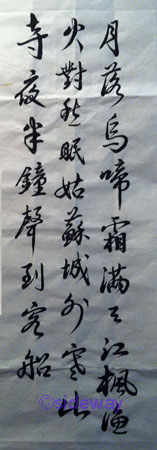 月落烏啼霜滿天江楓漁
火對愁眠姑蘇城外寒山
寺夜半鐘聲到客船
©sideway